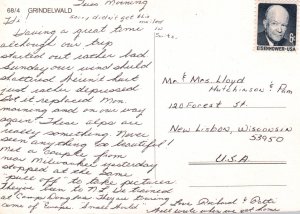 68/4 GRINDELWALD
Tues Morning
Hi! sorry didn't get this
mailed
in
Having a great time
although our trip
started out rather bad
Sunday our wind shield
shattered. Weren't hurt
just rather depressed
Got it replaced Mon.
morning and on our way
again. These alps are
really something. Never
seen anything so beautiful!
Met a couple from
near Milwaukee yesterday
stopped at the same
"pull off" to take pictures.
They're touring
some of Europe.
Love Richard &
Will write when we get home
EISENHOWER·USA
6¢
Mr & Mrs. Lloyd
Hutchinson & Pam
120 Forest St.
New Lisbon, Wisconsin
53950
U.S.A.